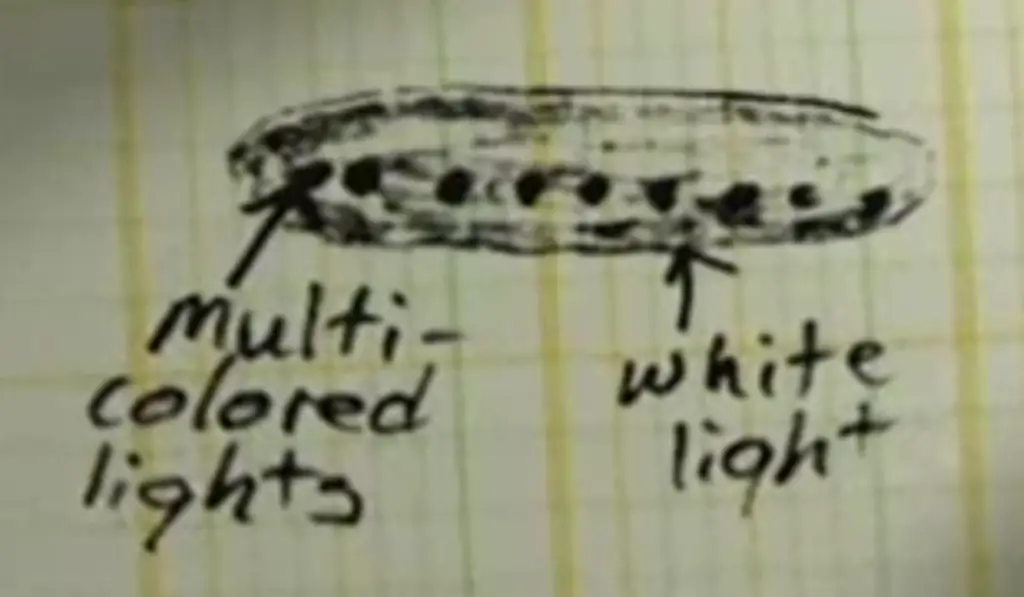 multi-
colored
lights
white
light